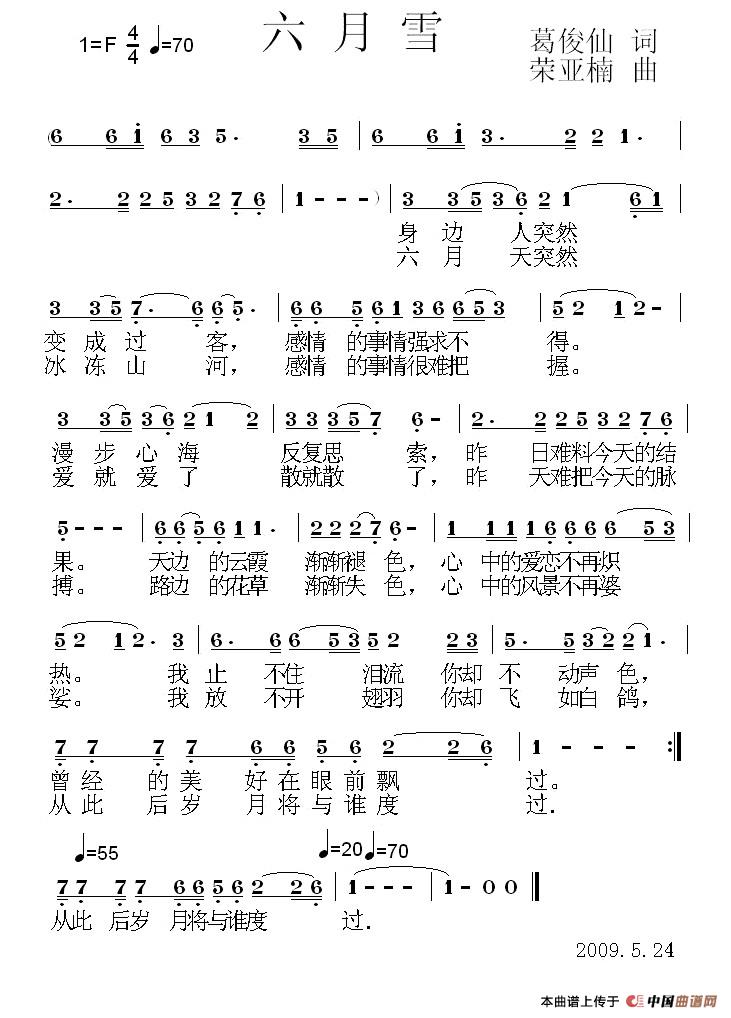 六月雪
1=F 4/4 ♩=70
葛俊仙 词
荣亚楠 曲
(6 6i 63 5· 35 | 6 6i 3· 2 2 1· |
2· 2 25 32 76 | 1 - - -) | 3 35 36 21 61 |
身边 人突然
六月 天突然
3 35 7· 6 65· | 66 56 13 66 653 | 52 12 - |
变成过 客，感情 的事情强求不 得。
冰冻山 河，感情 的事情很难把 握。
3 35 36 21 2 | 33 357 6 - | 2· 2 25 32 76 |
漫步心海 反复思 索，昨 日难料今天的结
爱就爱了 散就散 了，昨 天难把今天的脉
5 - - - | 66 56 11· | 22 27 6 - | 1 11 16 66 653 |
果。 天边 的云霞 渐渐褪 色，心 中的爱恋不再炽
搏。 路边 的花草 渐渐失 色，心 中的风景不再婆
52 12· 3 | 6· 6 6 53 52 23 | 5· 5 32 2 1· |
热。 我止 不住 泪流 你却 不 动声色，
娑。 我放 不开 翅羽 你却 飞 如白鸽，
7 7· 7 7· 6 6· 5 6· 2 26 | 1 - - - :||
曾经 的美 好在眼前飘 过。
从此 后岁 月将与谁度 过.
♩=55 ♩=20 ♩=70
7 7· 7 7· 66 56 2 26 | 1 - - - | 1 - 0 0 ||
从此 后岁 月将与谁度 过.
2009.5.24
本曲谱上传于 中国曲谱网